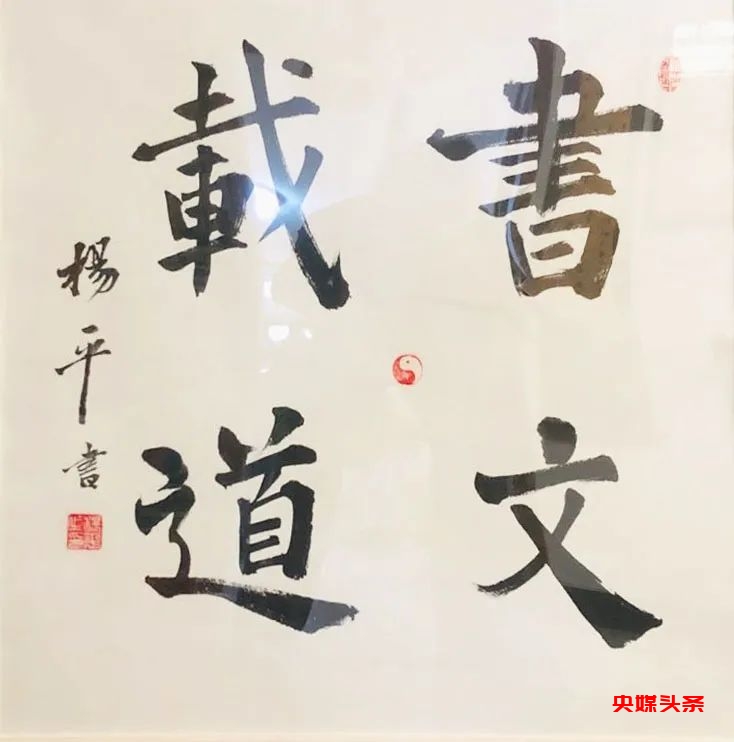 書文
載道
楊平書
央媒头条